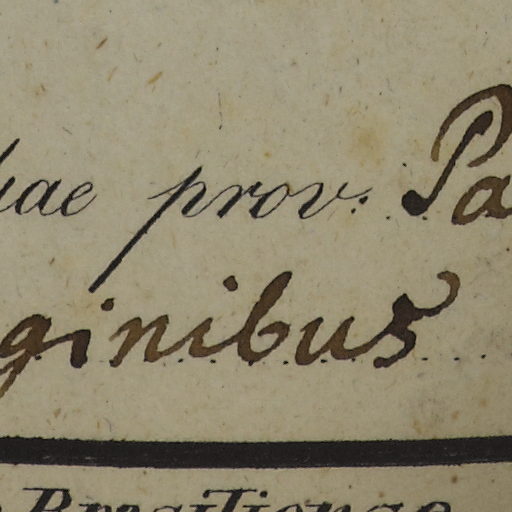 uae prov. Pa
ginibus
Brasilienae